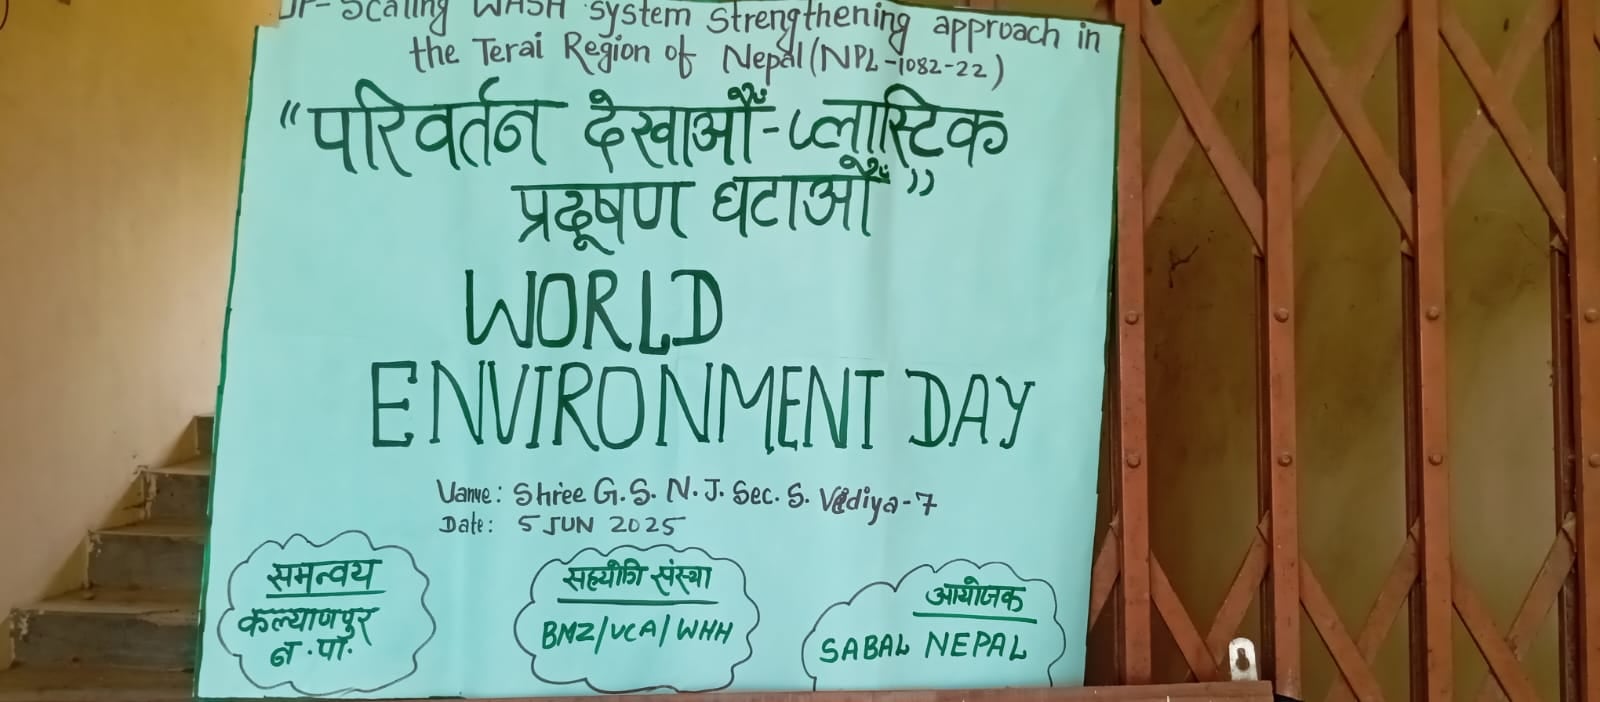 UP-Scaling WASH system strengthening approach in
the Terai Region of Nepal (NPL-1082-22)
“परिवर्तन देखाऔँ-प्लास्टिक
प्रदूषण घटाऔँ”
WORLD
ENVIRONMENT DAY
Vanue: Shree G.S. N.J. Sec. S. Vidiya-7
Date: 5 JUN 2025
समन्वय
कल्याणपुर
न.पा.
सहयोगी संस्था
BMZ/VCA/WHH
आयोजक
SABAL NEPAL